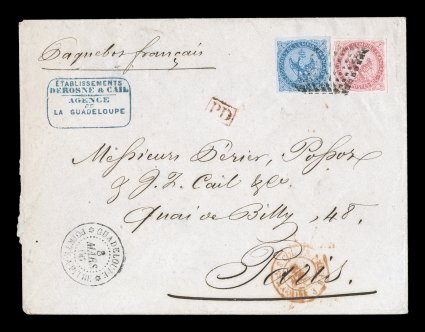 Paquebot français
ÉTABLISSEMENTS
DEROSNE & CAIL
AGENCE
DE
LA GUADELOUPE
PD
Messieurs Périer, Possoz
& J. F. Cail & Co.
Quai de Billy, 48.
GUADELOUPE
8
MARS
Paris.